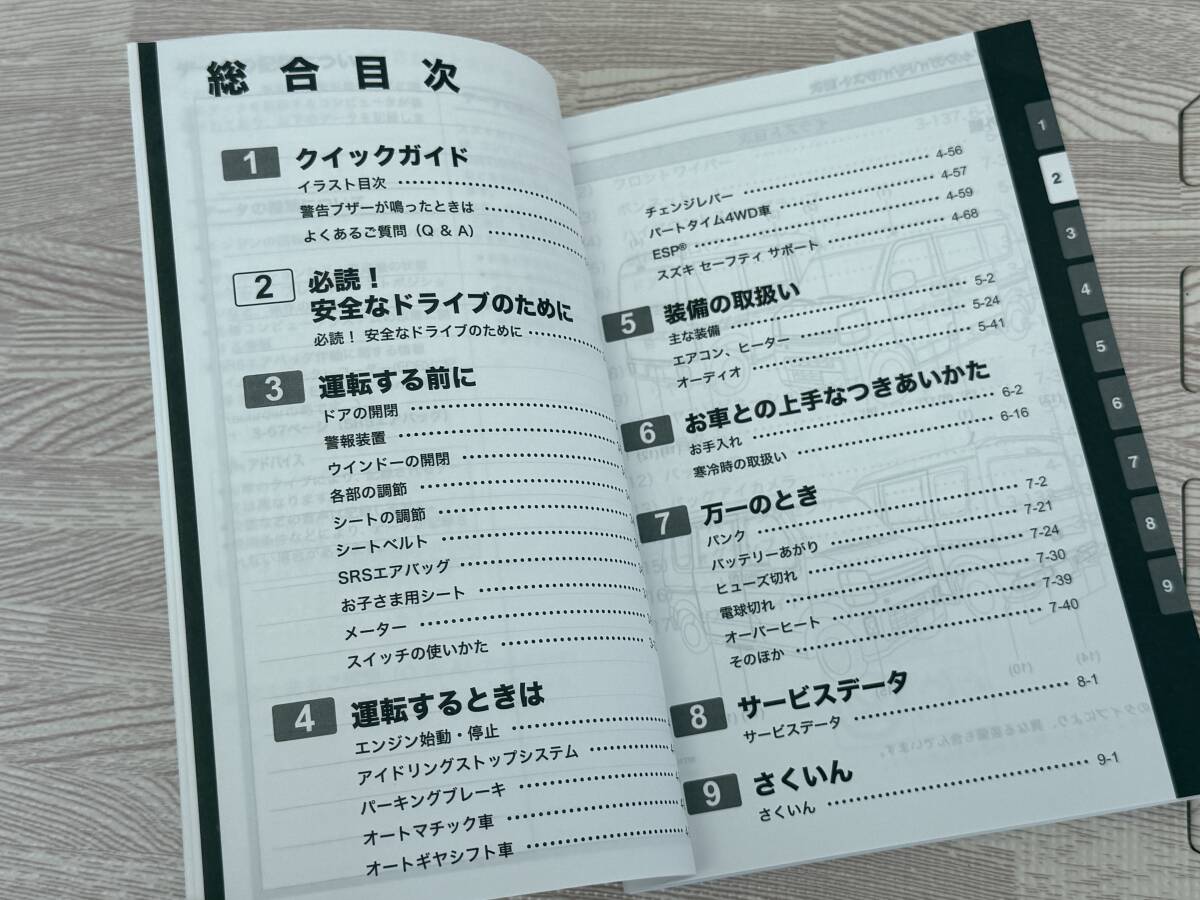 総合目次
1 クイックガイド
イラスト目次
警告ブザーが鳴ったときは
よくあるご質問（Q & A）
2 必読！
安全なドライブのために
必読！ 安全なドライブのために
3 運転する前に
ドアの開閉
警報装置
ウインドーの開閉
各部の調節
シートの調節
シートベルト
SRSエアバッグ
お子さま用シート
メーター
スイッチの使いかた
4 運転するときは
エンジン始動・停止
アイドリングストップシステム
パーキングブレーキ
オートマチック車
オートギヤシフト車
チェンジレバー 4-56
パートタイム4WD車 4-57
ESP® 4-59
スズキ セーフティ サポート 4-68
5 装備の取扱い
主な装備 5-2
エアコン、ヒーター 5-24
オーディオ 5-41
6 お車との上手なつきあいかた
お手入れ 6-2
寒冷時の取扱い 6-16
7 万一のとき
パンク 7-2
バッテリーあがり 7-21
ヒューズ切れ 7-24
電球切れ 7-30
オーバーヒート 7-39
そのほか 7-40
8 サービスデータ
サービスデータ 8-1
9 さくいん
さくいん 9-1
1
2
3
4
5
6
7
8
9